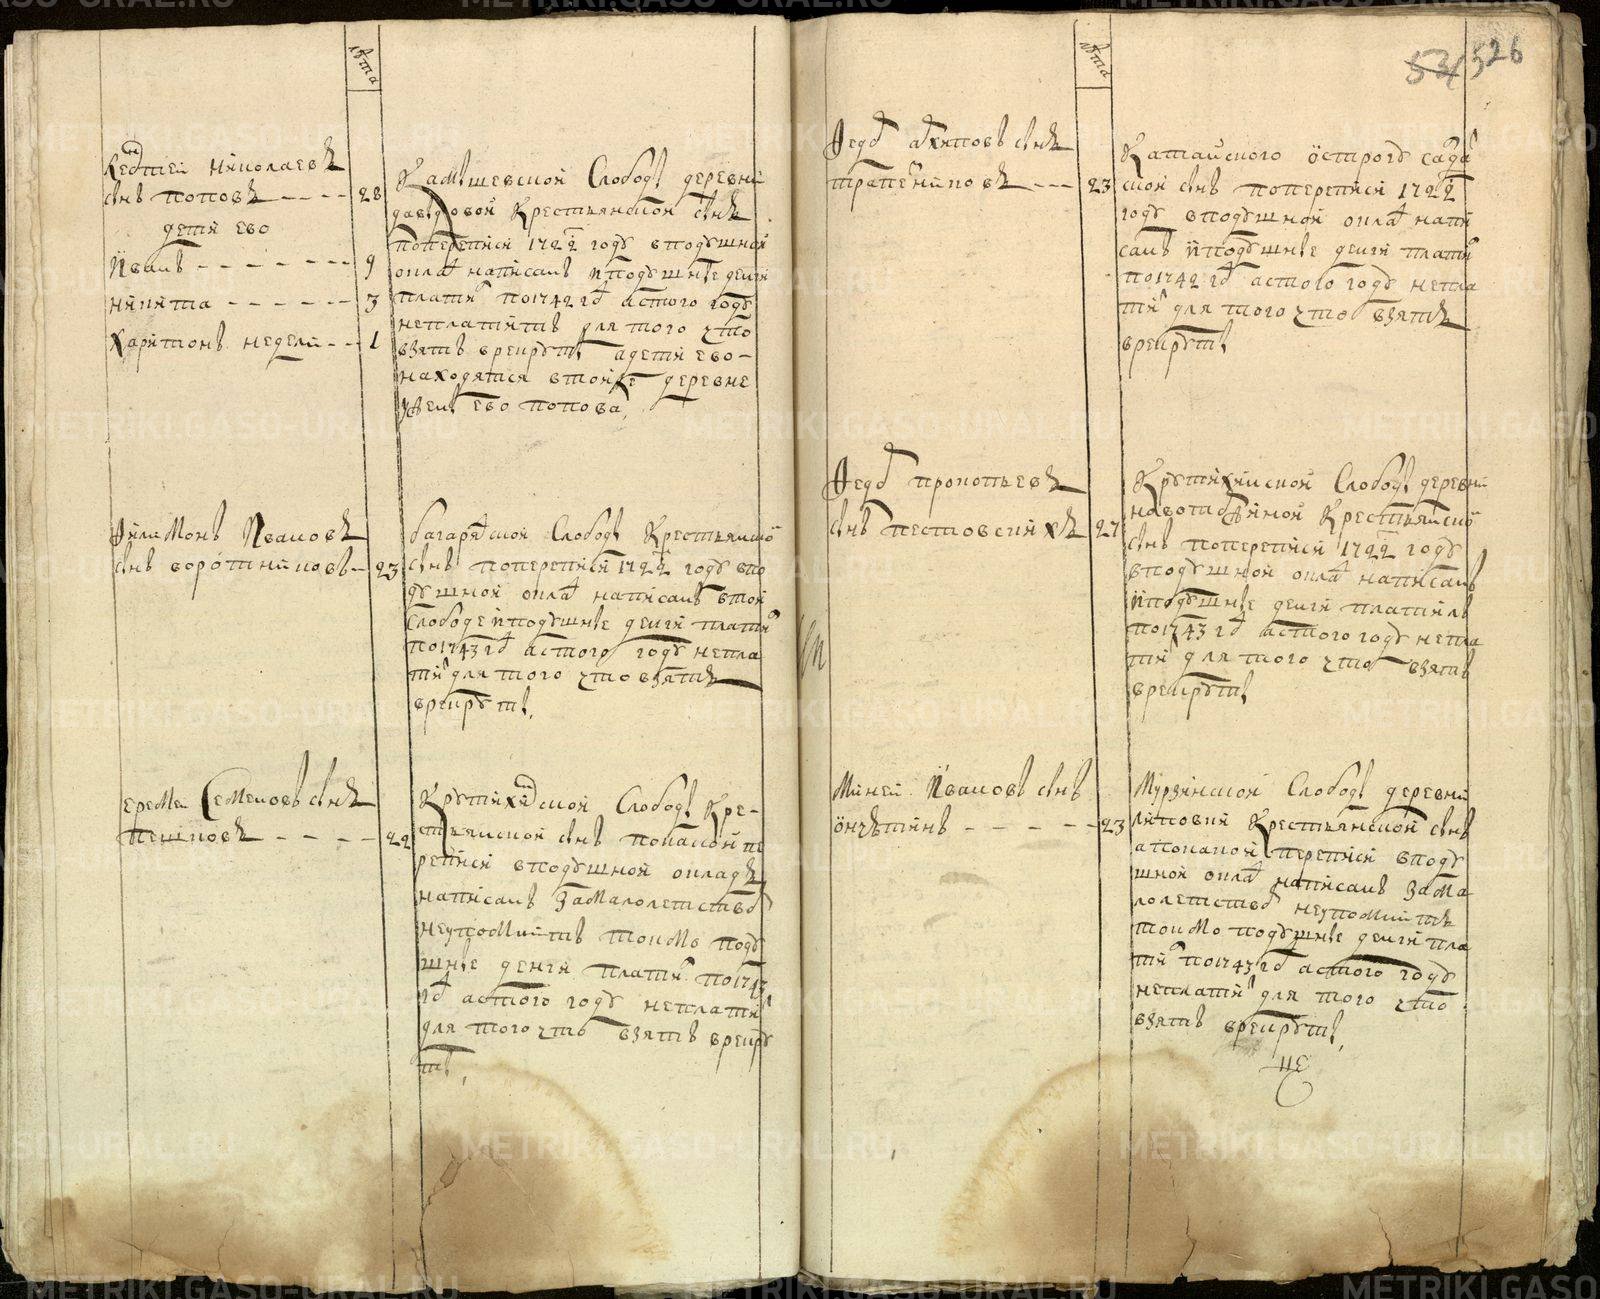 лета
Семтей николаевъ
снъ поповъ 28
дети ево
Иванъ 9
никита 3
харитонъ недели 1
Камышевской Слободы деревни
давыдовой Крестьянской снъ
попереписи 1722 году вподушной
оклад написанъ иподушные денги
плати по1742 год астого году
неплатитъ для того что
взятъ врекруты адети ево
находятся втойже деревне
ево попова
Филимонъ Ивановъ
снъ воротниковъ 23
багарятской Слободы Крестьянской
снъ попереписи 1722 году впо
душной оклад написанъ втой
слободе иподушные денги плати
по1743 год астого году непла
ти для того что взятъ
врекруты
еремей Семеновъ снъ
пешковъ 22
Крутихинской Слободы Кре
стьянской снъ покакой пе
реписи вподушной окладъ
написанъ замалолетством
неупомнитъ токмо поду
шные денги плати по1743
год астого году неплати
для того что взятъ врекру
ты
лета
534 526
Федор архиповъ снъ
трапезниковъ 23
Катайского острогу сада
ской снъ попереписи 1722
году вподушной оклад напи
санъ иподушные денги плати
по1742 год астого году непла
ти для того что взятъ
врекруты
Федор прокопьевъ
снъ пестовскихъ 27
Крутихинской Слободы деревни
Крестьянской
снъ попереписи 1722 году
вподушной оклад написанъ
иподушные денги платилъ
по1743 год астого году непла
ти для того что взятъ
врекруты
Миней Ивановъ снъ
23
Мурзинской Слободы деревни
Крестьянской снъ
апокакой переписи вподу
шной оклад написанъ зама
лолетством неупомнитъ
токмо подушные денги пла
ти по1743 год астого году
неплати для того что
взятъ врекруты
METRIKI.GASO-URAL.RU